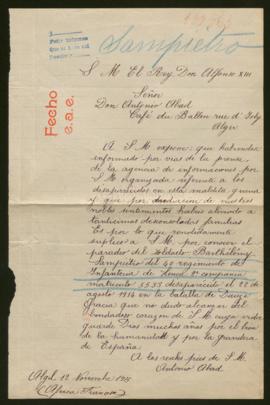 Sampietro
Fecho
e.a.e.
S M El Rey Don Alfonso XIII
Señor
Don Antonio Abad
Café du Ballon rue d'Isly
Alger
A S.M expone: que habiendo
informado por vias de la prensa
de la agencia de informaciones por
S.M organizada referente a los
desaparecidos en esta maldita guerra
y que por de nuestros
nobles sentimientos habeis alentado a
tantisimas desconsoladas familias
Es por lo que rendidamente
suplico a S.M. por conocer el
paradero del soldado Barthélemy
Sampietro del regimiento de
Infanteria de 8ª compañia
matricula 5533 desaparecido el 22 de
agosto 1914 en la batalla de
Gracia que no dudo alcanzar del
bondadoso corazon de S.M cuya vida
guarde Dios muchos años por el bien
de la humanidad y por la grandeza
de España.
A los reales pies de S.M.
Antonio Abad
Argel 12 Noviembre 1915
(Africa Francesa)